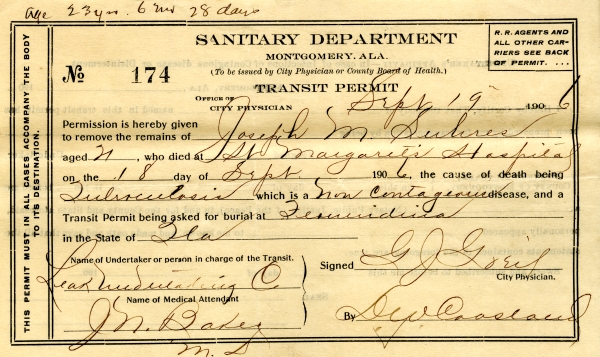 Age 23 yrs. 6 mo 28 days
SANITARY DEPARTMENT
MONTGOMERY, ALA.
(To be issued by City Physician or County Board of Health.)
R. R. AGENTS AND
ALL OTHER CAR-
RIERS SEE BACK
OF PERMIT....
№ 174
TRANSIT PERMIT
OFFICE OF
CITY PHYSICIAN
Sept 19 1906
Permission is hereby given
to remove the remains of Joseph M.
aged 21, who died at St. Margarets Hospital
on the 18 day of Sept 1906, the cause of death being
Tuburculosis which is a Non contageous disease, and a
Transit Permit being asked for burial at
in the State of Fla
Name of Undertaker or person in charge of the Transit.
Leak Undertaking Co
Name of Medical Attendant
J. N. Baker
M. D
Signed G J Greil
City Physician.
By
THIS PERMIT MUST IN ALL CASES ACCOMPANY THE BODY
TO ITS DESTINATION.